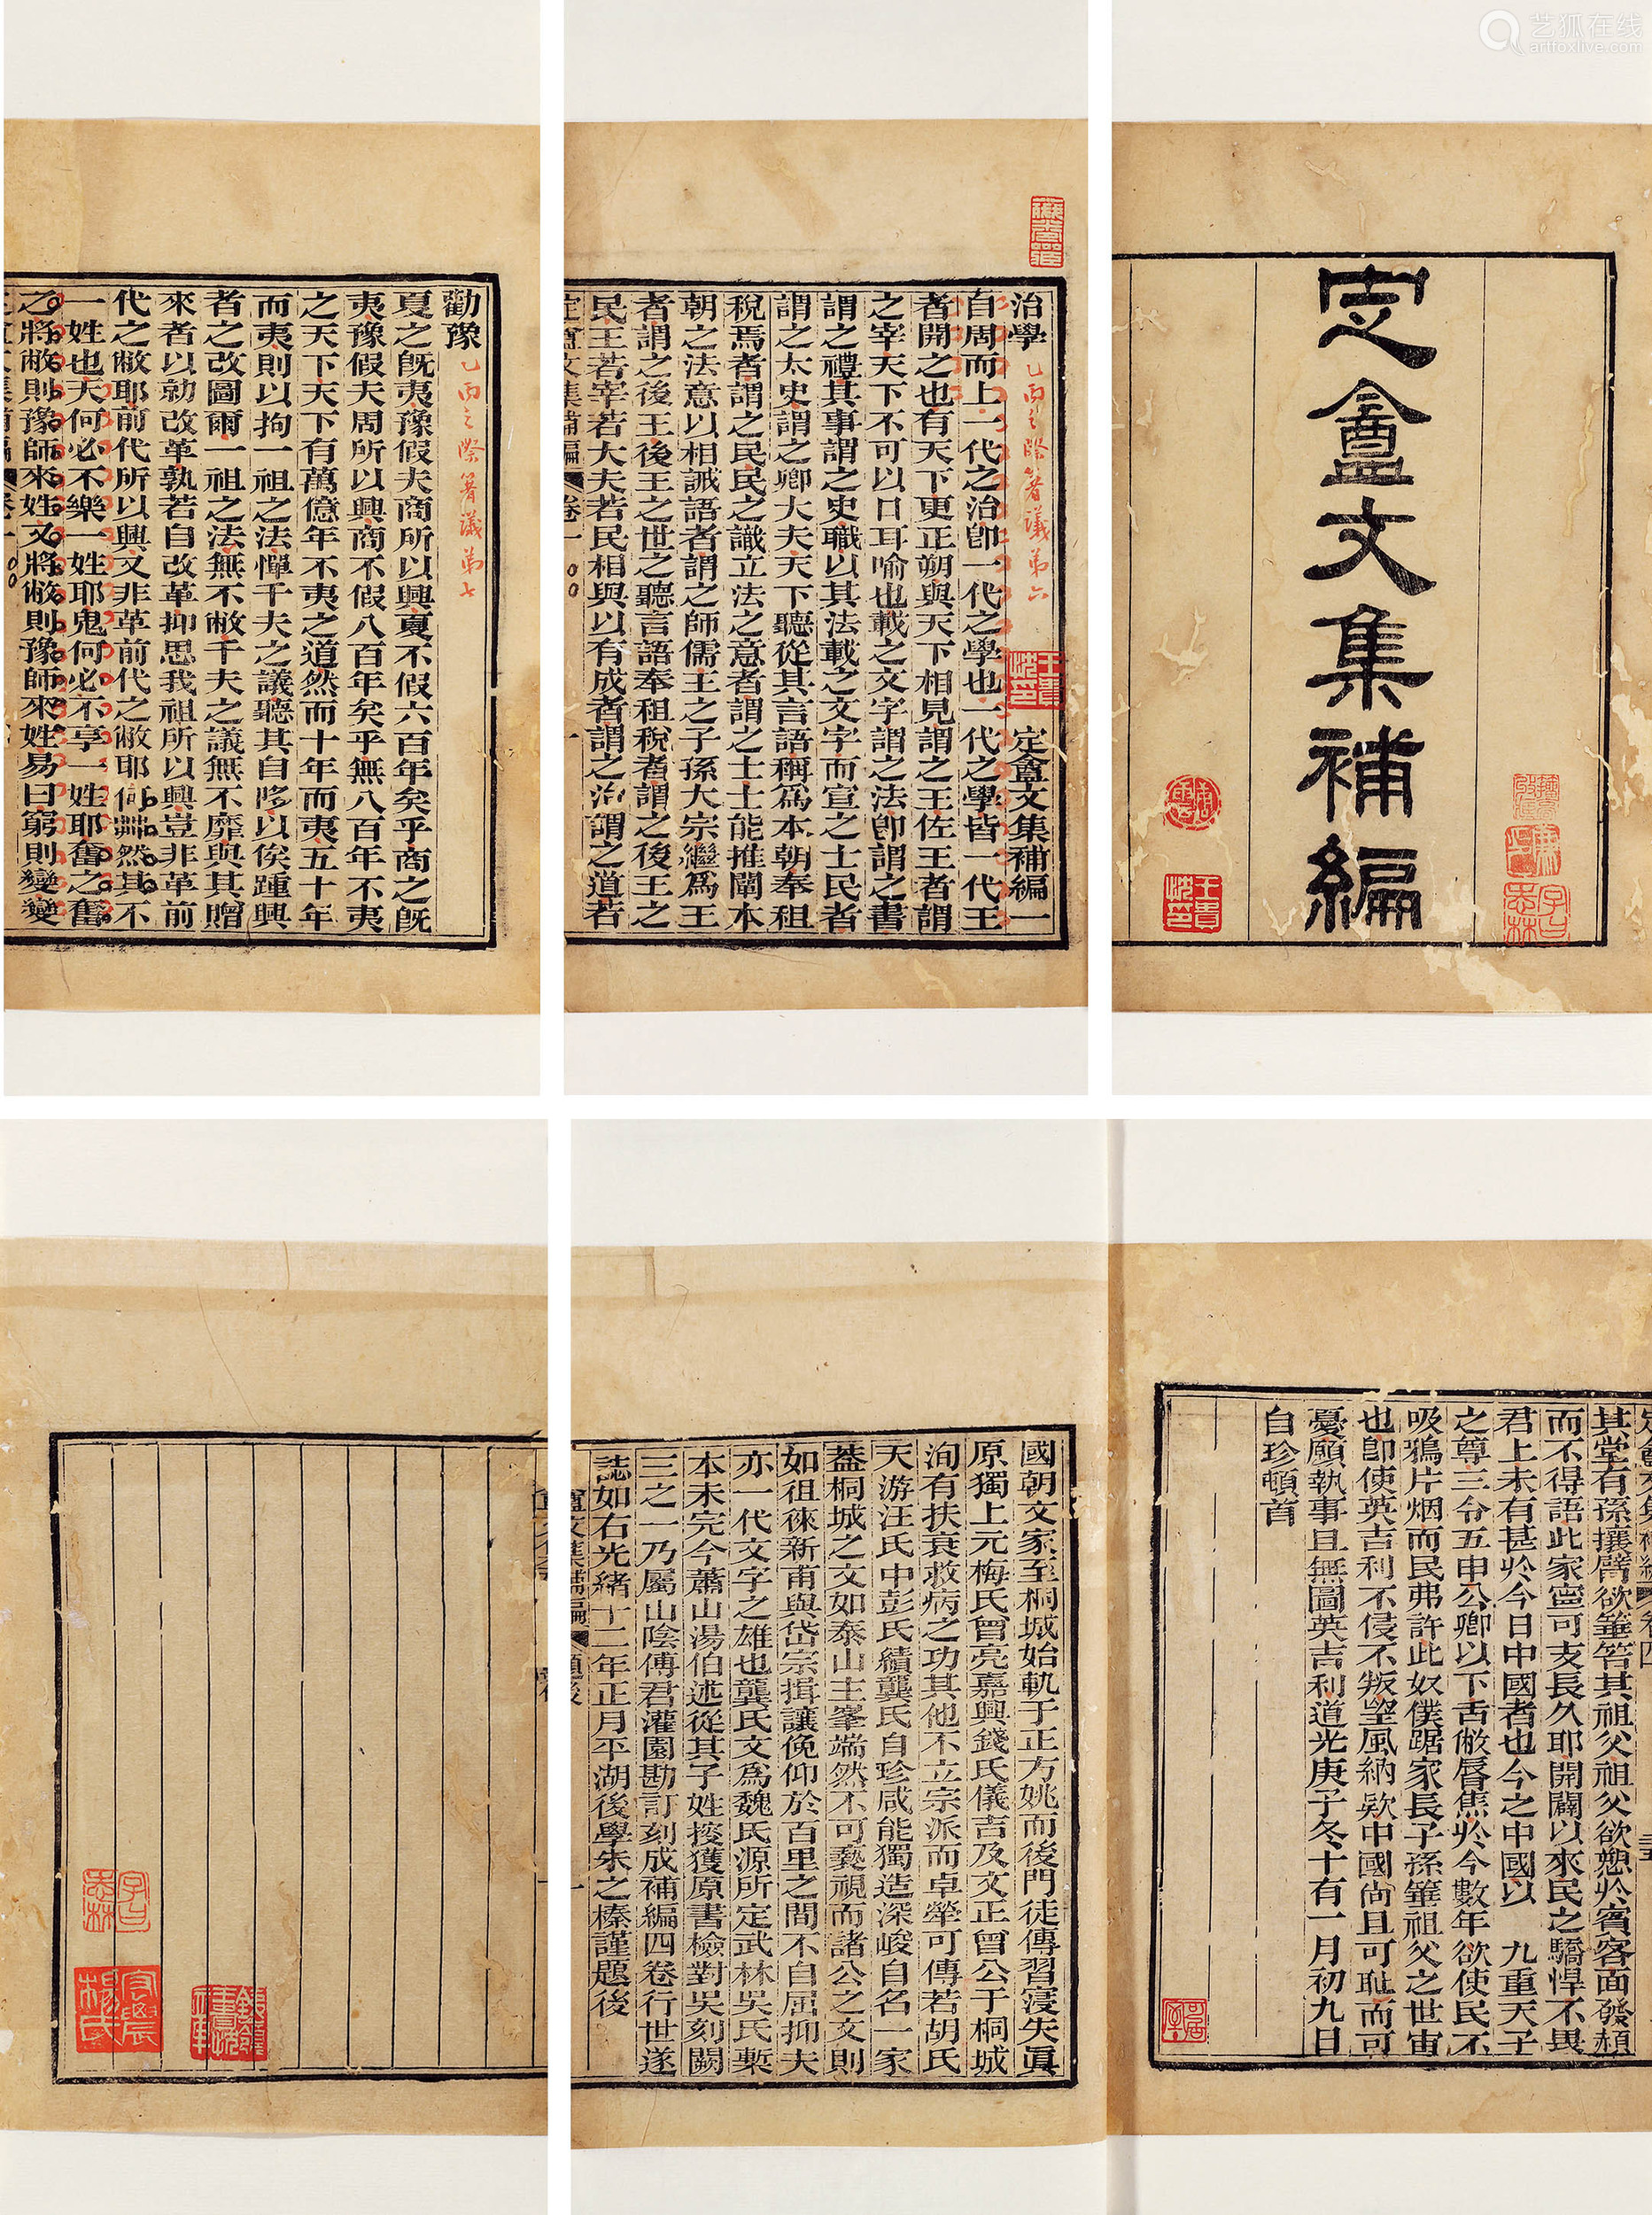 艺狐在线
artfoxlive.com
定盦文集補編
治學
乙丙之際箸議弟六
定盦文集補編一
自周而上一代之治卽一代之學也一代之學皆一代王
者開之也有天下更正朔與天下相見謂之王佐王者謂
之宰天下不可以口耳喻也載之文字謂之法卽謂之書
謂之禮其事謂之史職以其法載之文字而宣之士民者
謂之太史謂之卿大夫天下聽從其言語稱爲本朝奉租
稅焉者謂之民民之識立法之意者謂之士士能推闡本
朝之法意以相誡語者謂之師儒王之子孫大宗繼爲王
者謂之後王後王之世之聽言語奉租稅者謂之後王之
民王若宰若大夫若民相與以有成者謂之治謂之道若
定盦文集補編 卷一 一
勸豫
乙丙之際箸議弟七
夏之旣夷豫假夫商所以興夏不假六百年矣乎商之旣
夷豫假夫周所以興商不假八百年矣乎無八百年不夷
之天下天下有萬億年不夷之道然而十年而夷五十年
而夷則以拘一祖之法憚千夫之議聽其自陊以俟踵興
者之改圖爾一祖之法無不敝千夫之議無不靡與其贈
來者以勍改革孰若自改革抑思我祖所以興豈非革前
代之敝耶前代所以興又非革前代之敝耶何莽然其不
一姓也天何必不樂一姓耶鬼何必不享一姓耶奮之奮
之將敝則豫師來姓又將敝則豫師來姓易曰窮則變變
其堂有孫攘臂欲箠笞其祖父祖父欲愬於賓客面發赬
而不得語此家寧可支長久耶開闢以來民之驕悍不畏
君上未有甚於今日中國者也今之中國以 九重天子
之尊三令五申公卿以下舌敝脣焦於今數年欲使民不
吸鴉片烟而民弗許此奴僕踞家長子孫箠祖父之世宙
也卽使英吉利不侵不叛望風納款中國尚且可恥而可
憂願執事且無圖英吉利道光庚子冬十有一月初九日
自珍頓首
國朝文家至桐城始軌于正方姚而後門徒傳習寖失眞
原獨上元梅氏曾亮嘉興錢氏儀吉及文正曾公于桐城
洵有扶衰救病之功其他不立宗派而卓犖可傳若胡氏
天游汪氏中彭氏績龔氏自珍咸能獨造深峻自名一家
葢桐城之文如泰山主峯端然不可褻視而諸公之文則
如徂徠新甫與岱宗揖讓俛仰於百里之間不自屈抑夫
亦一代文字之雄也龔氏文爲魏氏源所定武林吳氏槧
本未完今蕭山湯伯述從其子姓按獲原書檢對吳刻闕
三之一乃屬山陰傅君灌園勘訂刻成補編四卷行世遂
誌如右光緒十二年正月平湖後學朱之榛謹題後